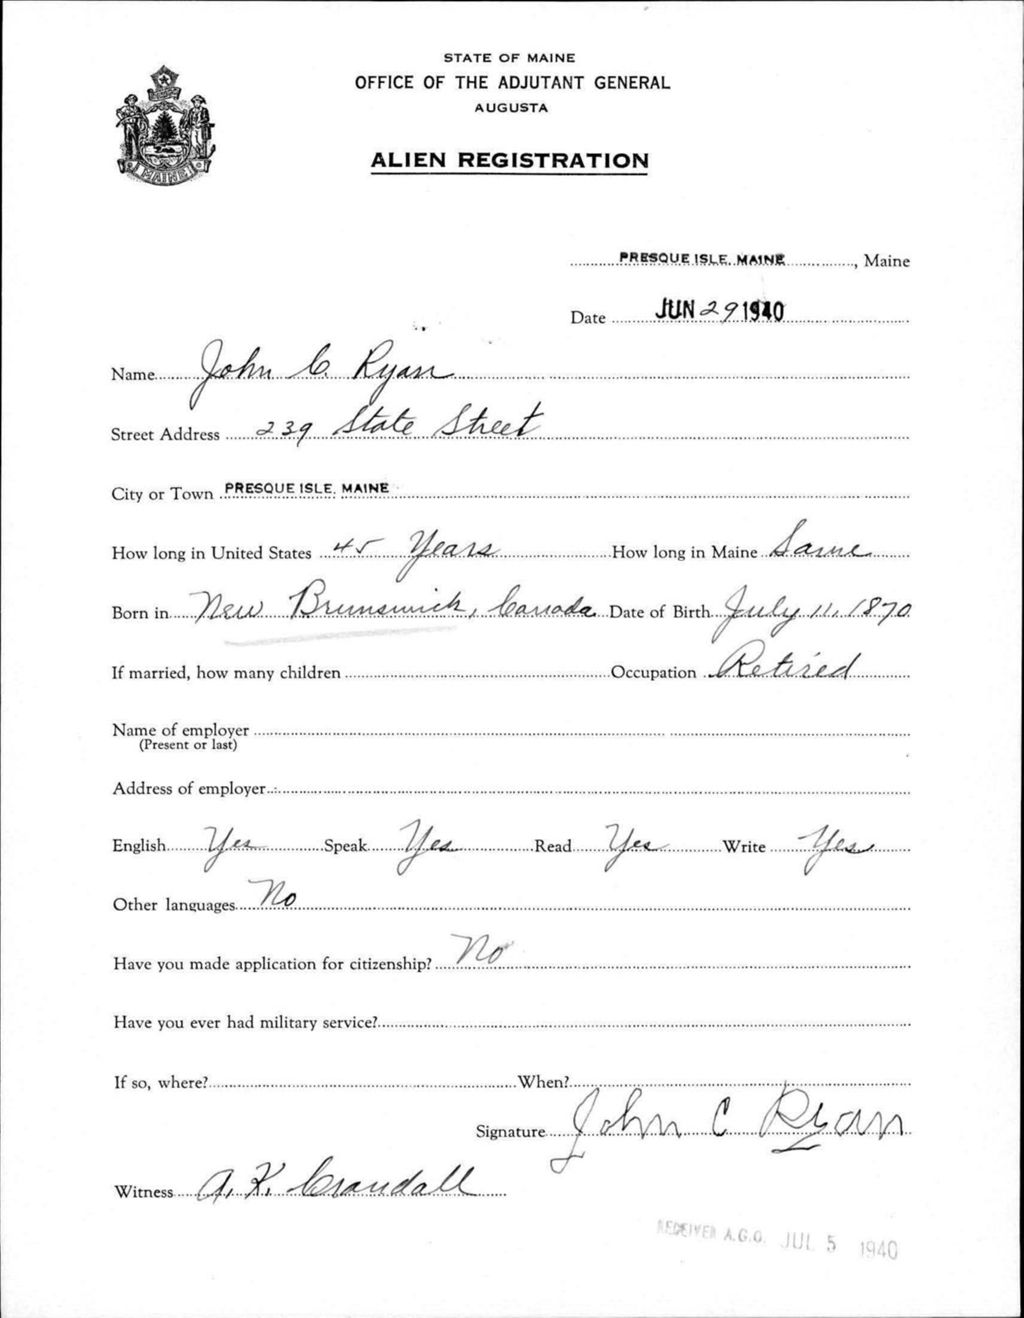 STATE OF MAINE
OFFICE OF THE ADJUTANT GENERAL
AUGUSTA
ALIEN REGISTRATION
MAINE
PRESQUE ISLE, MAINE, Maine
Date JUN 29 1940
Name John C. Ryan
Street Address 239 State Street
City or Town PRESQUE ISLE, MAINE
How long in United States 45 Years How long in Maine Same
Born in New Brunswick, Canada Date of Birth July 11, 1870
If married, how many children Occupation Retired
Name of employer
(Present or last)
Address of employer
English Yes Speak Yes Read Yes Write Yes
Other languages No
Have you made application for citizenship? No
Have you ever had military service?
If so, where? When?
Signature John C Ryan
Witness A. K. Crandall
RECEIVED A.G.O. JUL 5 1940